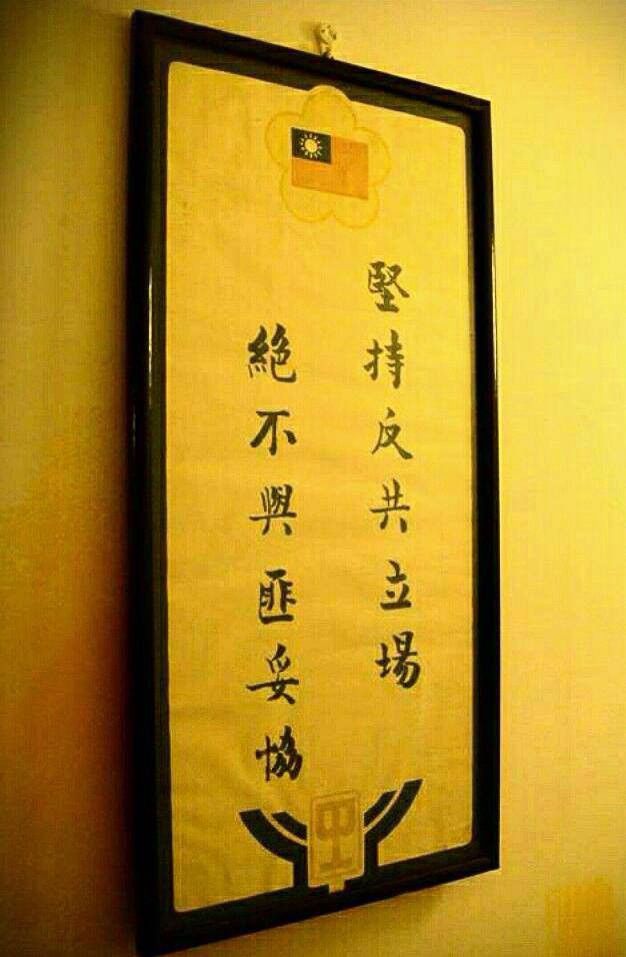 堅持反共立場
絕不與匪妥協